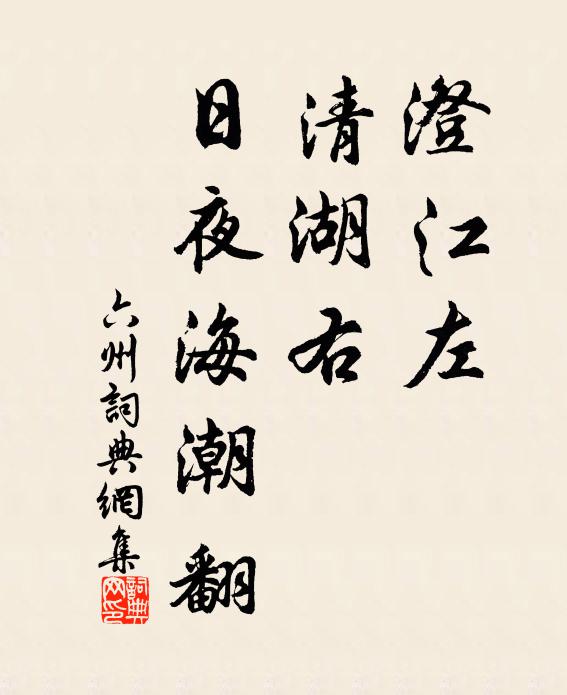 澄江左
清湖右
日夜海潮翻
六州詞典網集
詞典
网印